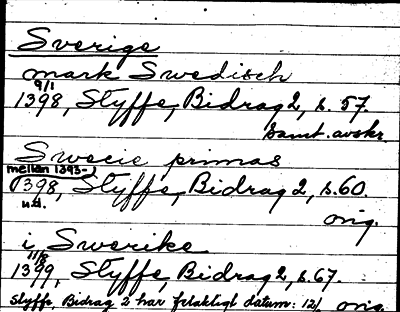 Sverige
mark Swedisch
9/1
1398, Styffe, Bidrag 2, s. 57.
samt. avskr.
Swecie primas
mellan 1393-
1398, Styffe, Bidrag 2, s. 60
u.d.
orig.
i Swerike
11/8
1399, Styffe, Bidrag 2, s. 67.
Styffe, Bidrag 2 har felaktigt datum: 12/ orig.